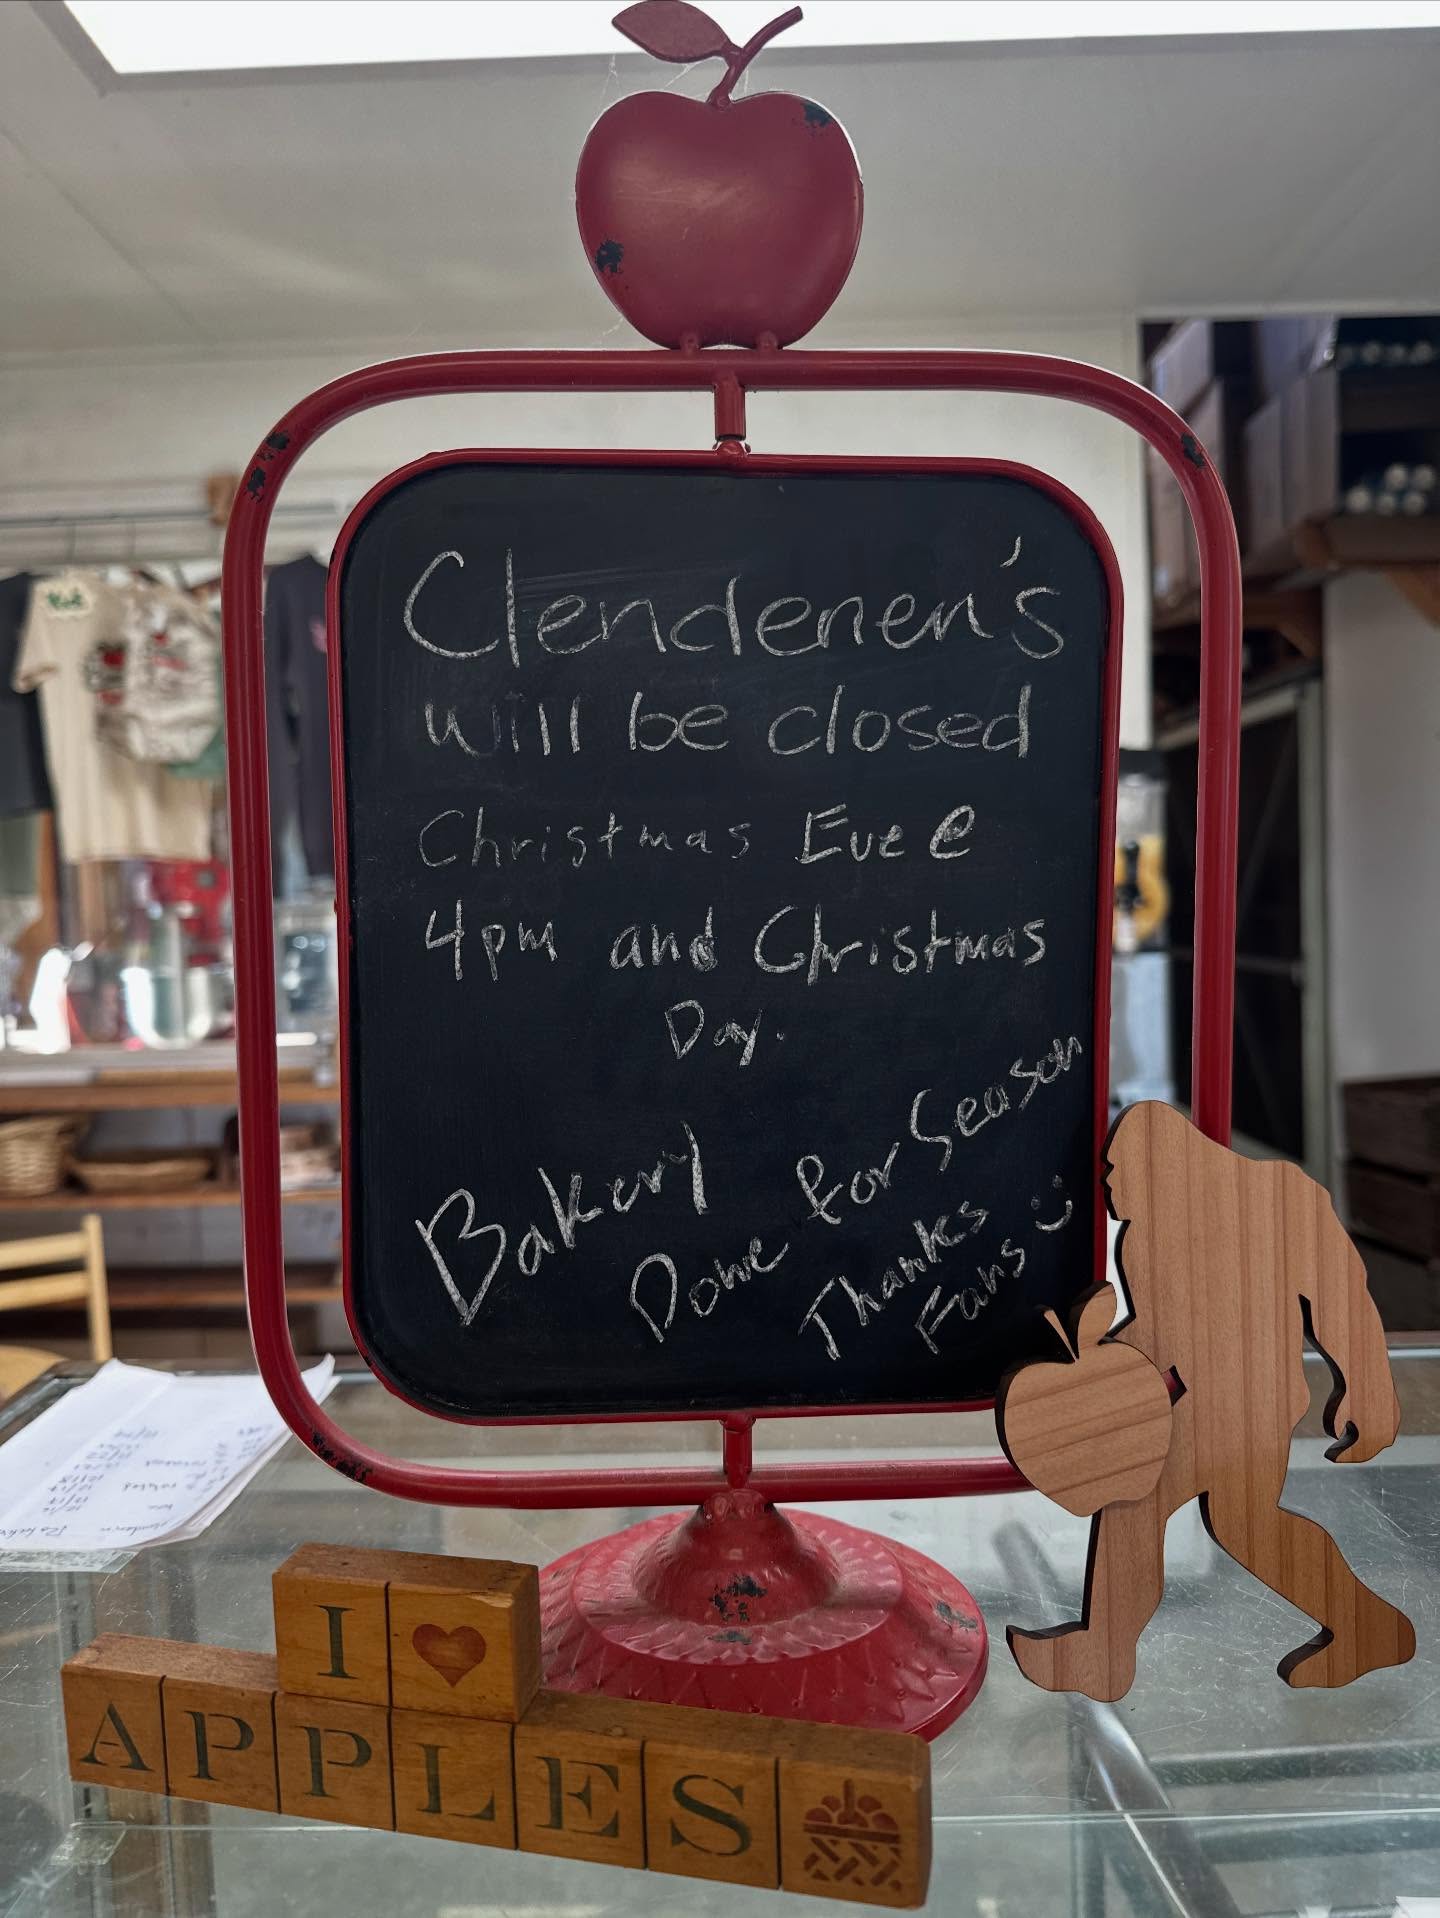 Clendenen's
will be closed
Christmas Eve @
4pm and Christmas
Day.
Bakery
Done for Season
Thanks
Fans :)
I
APPLES